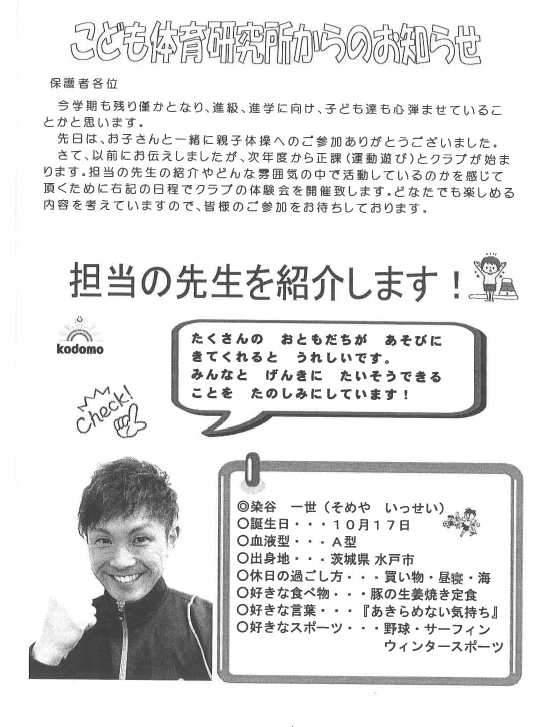 こども体育研究所からのお知らせ
保護者各位
今学期も残り僅かとなり、進級、進学に向け、子ども達も心弾ませているこ
とかと思います。
先日は、お子さんと一緒に親子体操へのご参加ありがとうございました。
さて、以前にお伝えしましたが、次年度から正課(運動遊び)とクラブが始ま
ります。担当の先生の紹介やどんな雰囲気の中で活動しているのかを感じて
頂くために右記の日程でクラブの体験会を開催致します。どなたでも楽しめる
内容を考えていますので、皆様のご参加をお待ちしております。
担当の先生を紹介します！
kodomo
たくさんの おともだちが あそびに
きてくれると うれしいです。
みんなと げんきに たいそうできる
ことを たのしみにしています！
Check!
◎染谷 一世（そめや いっせい）
〇誕生日・・・１０月１７日
〇血液型・・・Ａ型
〇出身地・・・茨城県 水戸市
〇休日の過ごし方・・・買い物・昼寝・海
〇好きな食べ物・・・豚の生姜焼き定食
〇好きな言葉・・・『あきらめない気持ち』
〇好きなスポーツ・・・野球・サーフィン
ウィンタースポーツ